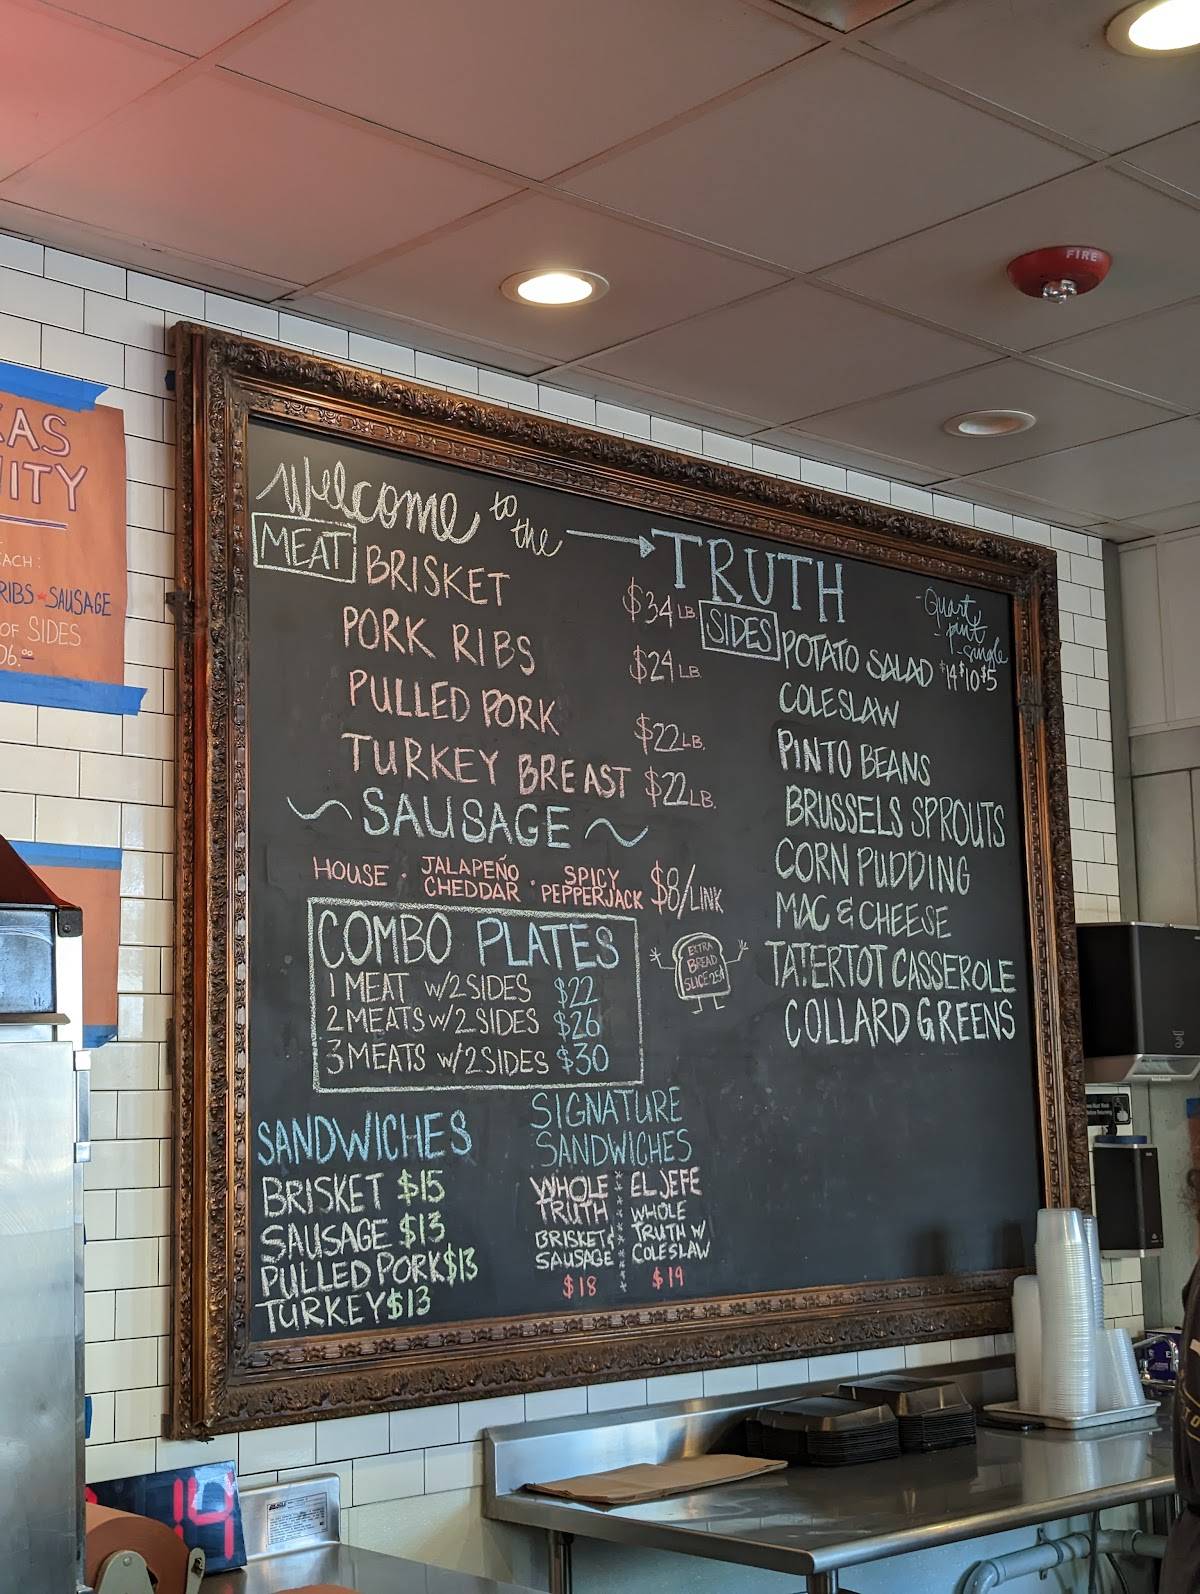 FIRE
XAS
NITY
EACH:
RIBS - SAUSAGE
OF SIDES
06.00
Welcome to the → TRUTH
MEAT
BRISKET $34 LB.
PORK RIBS $24 LB
PULLED PORK $22 LB.
TURKEY BREAST $22 LB.
~ SAUSAGE ~
HOUSE · JALAPEÑO CHEDDAR · SPICY PEPPERJACK $8/LINK
COMBO PLATES
1 MEAT W/2 SIDES $22
2 MEATS W/2 SIDES $26
3 MEATS W/2 SIDES $30
EXTRA
BREAD
SLICE 25¢
SIDES
- Quart
- pint
- single
$14 $10 $5
POTATO SALAD
COLESLAW
PINTO BEANS
BRUSSELS SPROUTS
CORN PUDDING
MAC & CHEESE
TATERTOT CASSEROLE
COLLARD GREENS
SANDWICHES
BRISKET $15
SAUSAGE $13
PULLED PORK $13
TURKEY $13
SIGNATURE
SANDWICHES
WHOLE
TRUTH
BRISKET &
SAUSAGE
$18
EL JEFE
WHOLE
TRUTH W/
COLESLAW
$19
14